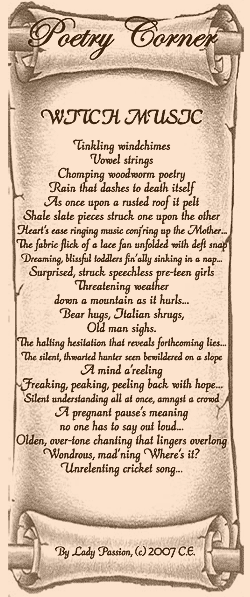 Poetry Corner
WITCH MUSIC
Tinkling windchimes
Vowel strings
Chomping woodworm poetry
Rain that dashes to death itself
As once upon a rusted roof it pelt
Shale slate pieces struck one upon the other
Heart's ease ringing music conj'ring up the Mother...
The fabric flick of a lace fan unfolded with deft snap
Dreaming, blissful toddlers fin'ally sinking in a nap...
Surprised, struck speechless pre-teen girls
Threatening weather
down a mountain as it hurls...
Bear hugs, Italian shrugs,
Old man sighs.
The halting hesitation that reveals forthcoming lies...
The silent, thwarted hunter seen bewildered on a slope
A mind a'reeling
Freaking, peaking, peeling back with hope...
Silent understanding all at once, amngst a crowd
A pregnant pause's meaning
no one has to say out loud...
Olden, over-tone chanting that lingers overlong
Wondrous, mad'ning Where's it?
Unrelenting cricket song...
By Lady Passion, (c) 2007 C.E.